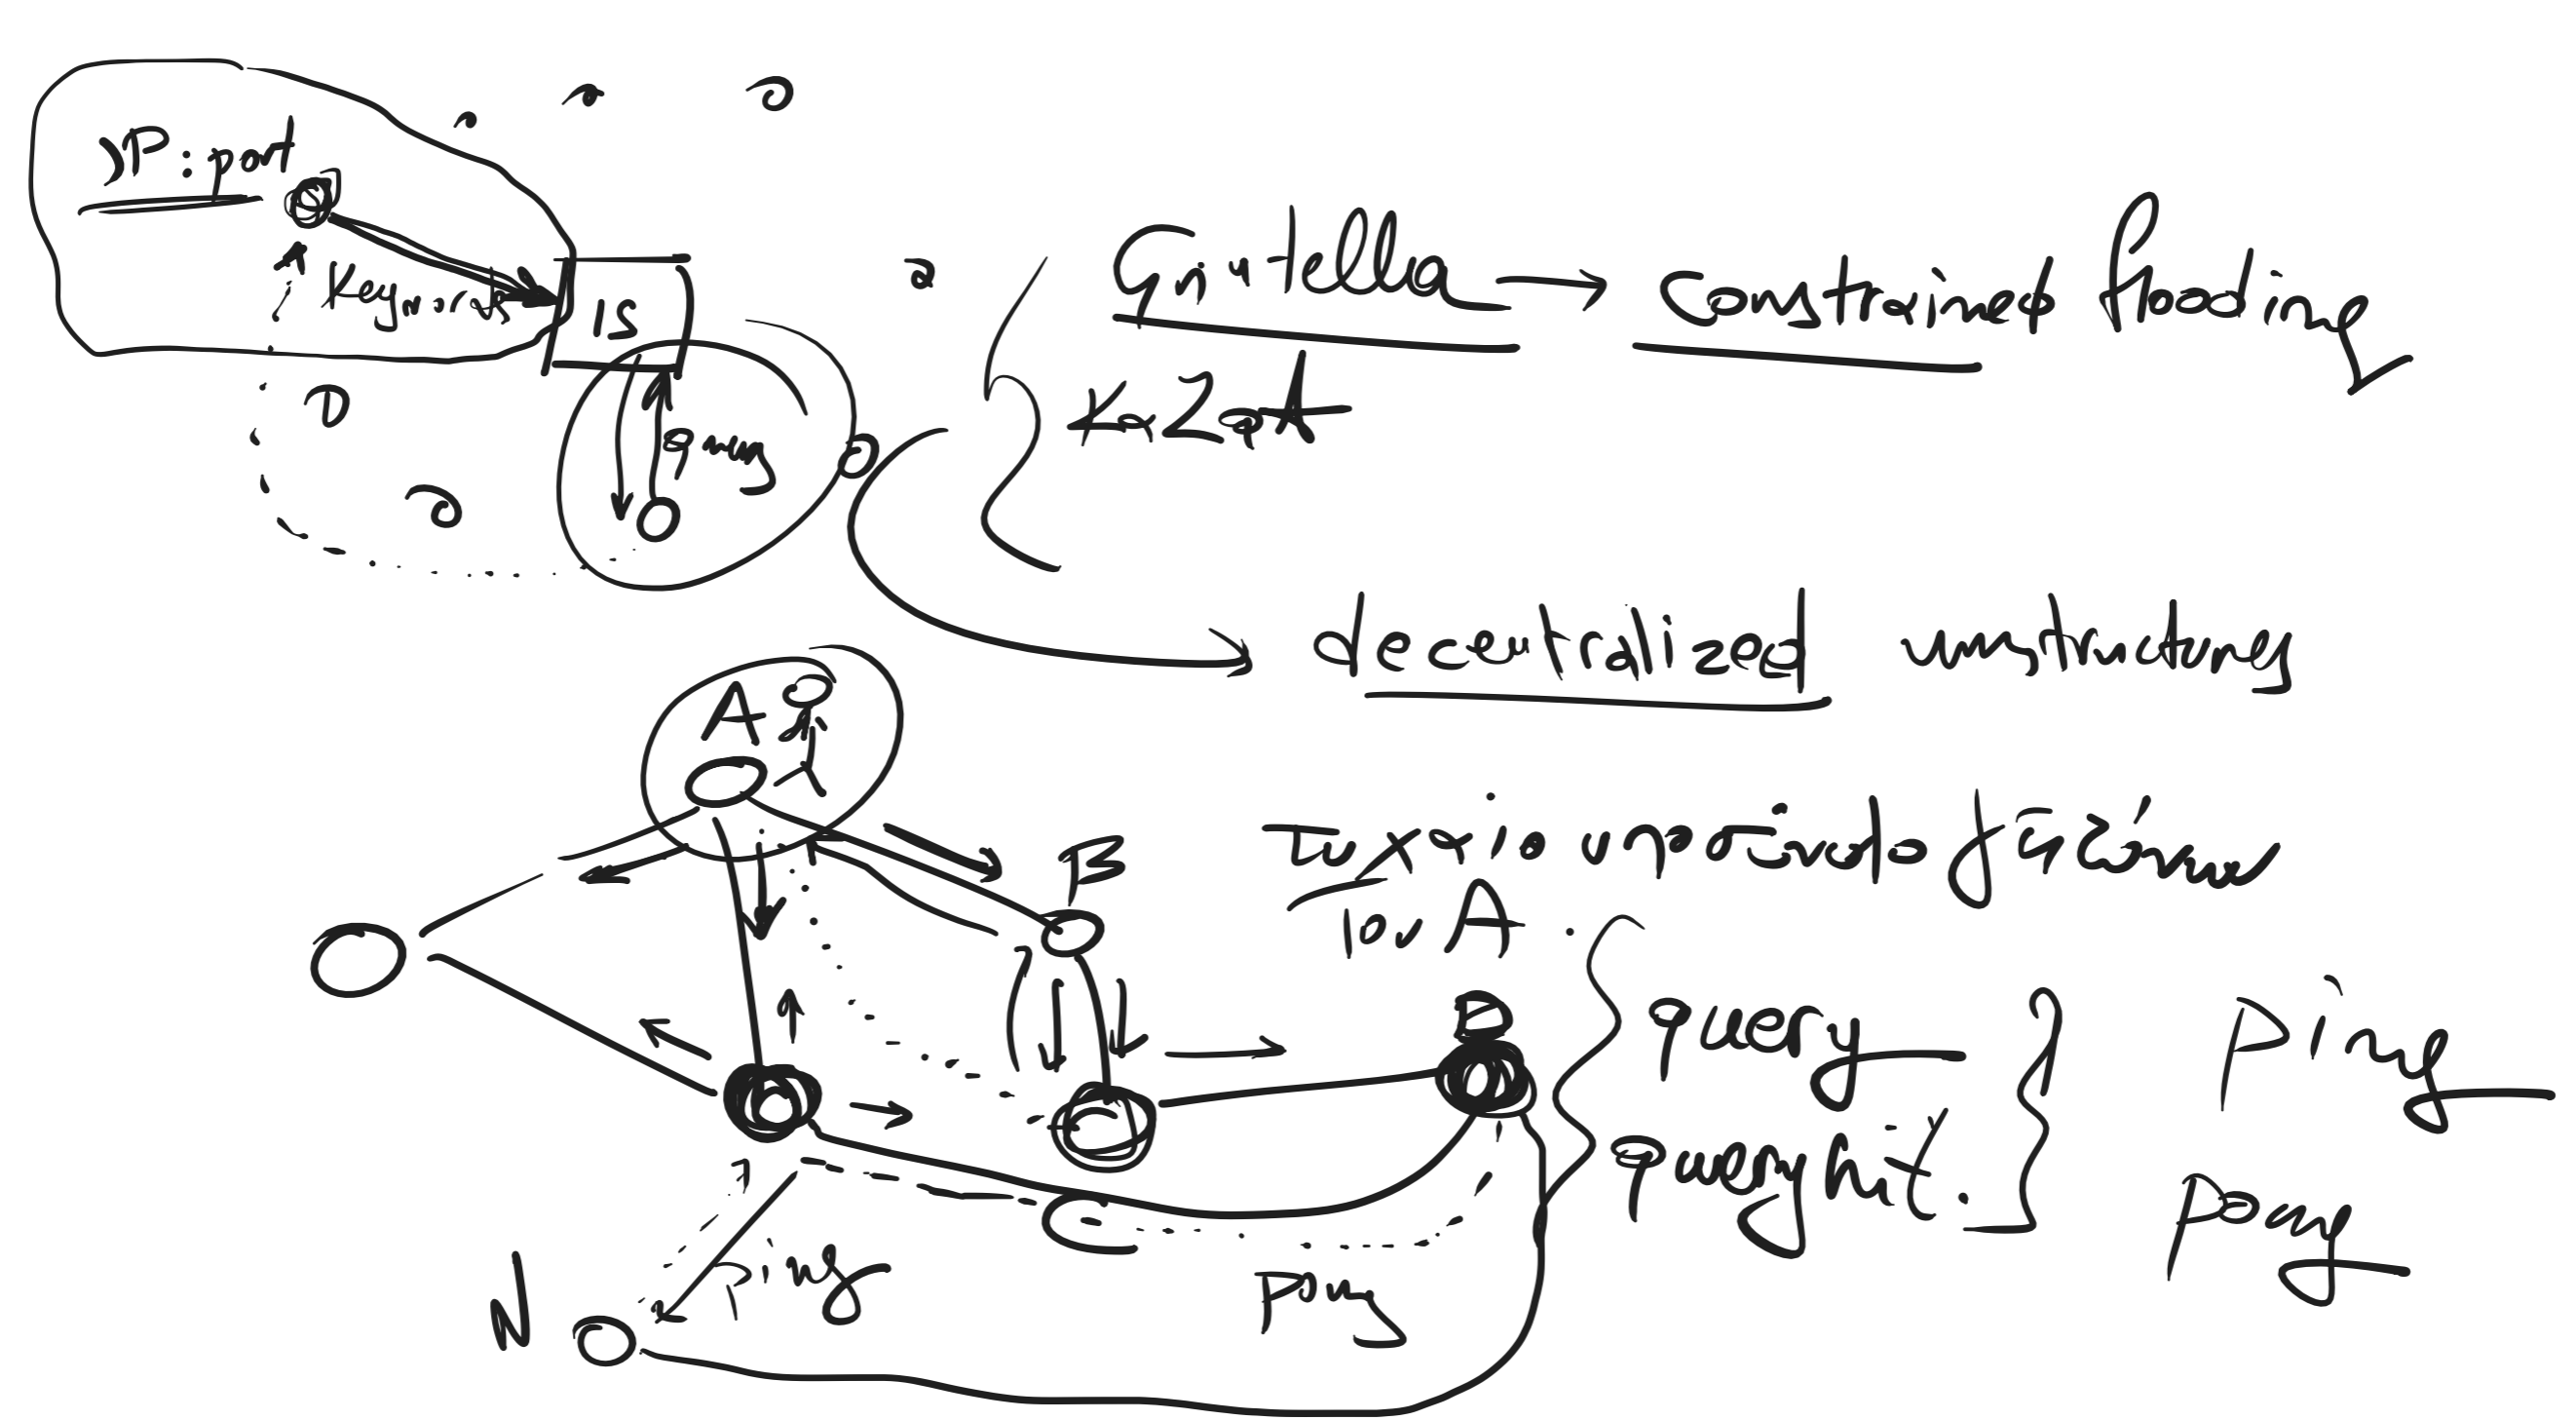 IP: port
Keywords
IS
query
Gnutella → constrained flooding
KaZaA
decentralized unstructured
A
B
τυχαίο υποσύνολο γειτόνων
του A.
D
query
queryhit.
ping
pong
C
ping
pong
N